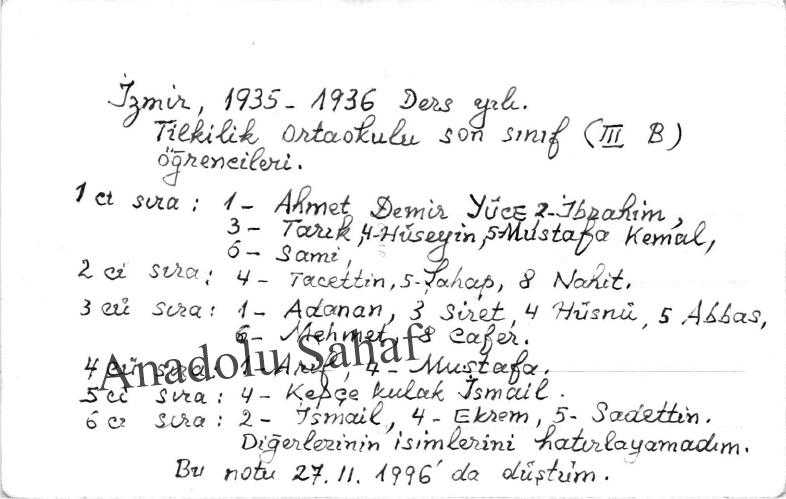 İzmir, 1935 - 1936 Ders yılı.
Tilkilik Ortaokulu son sınıf (III B)
öğrencileri.
1 ci sıra : 1 - Ahmet Demir YÜCE 2 - İbrahim,
3 - Tarık, 4 - Hüseyin, 5 - Mustafa Kemal,
6 - Sami,
2 ci sıra : 4 - Tacettin, 5 - Şahap, 8 Nahit.
3 cü sıra : 1 - Adanan, 3 Siret, 4 Hüsnü, 5 Abbas,
6 - Mehmet, 8 Cafer.
4 cü sıra : 1 - Arif, 4 - Mustafa.
Anadolu Sahaf
5 ci sıra : 4 - Kepçe kulak İsmail.
6 cı sıra : 2 - İsmail, 4 - Ekrem, 5 - Sadettin.
Diğerlerinin isimlerini hatırlayamadım.
Bu notu 27.11.1996' da düştüm.